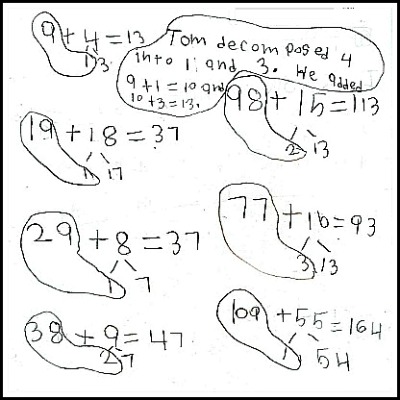 9 + 4 = 13
1 3
Tom decomposed 4
into 1 and 3. We added
9 + 1 = 10 and
10 + 3 = 13.
98 + 15 = 113
2 13
19 + 18 = 37
1 17
77 + 16 = 93
3 13
29 + 8 = 37
1 7
109 + 55 = 164
1 54
38 + 9 = 47
2 7